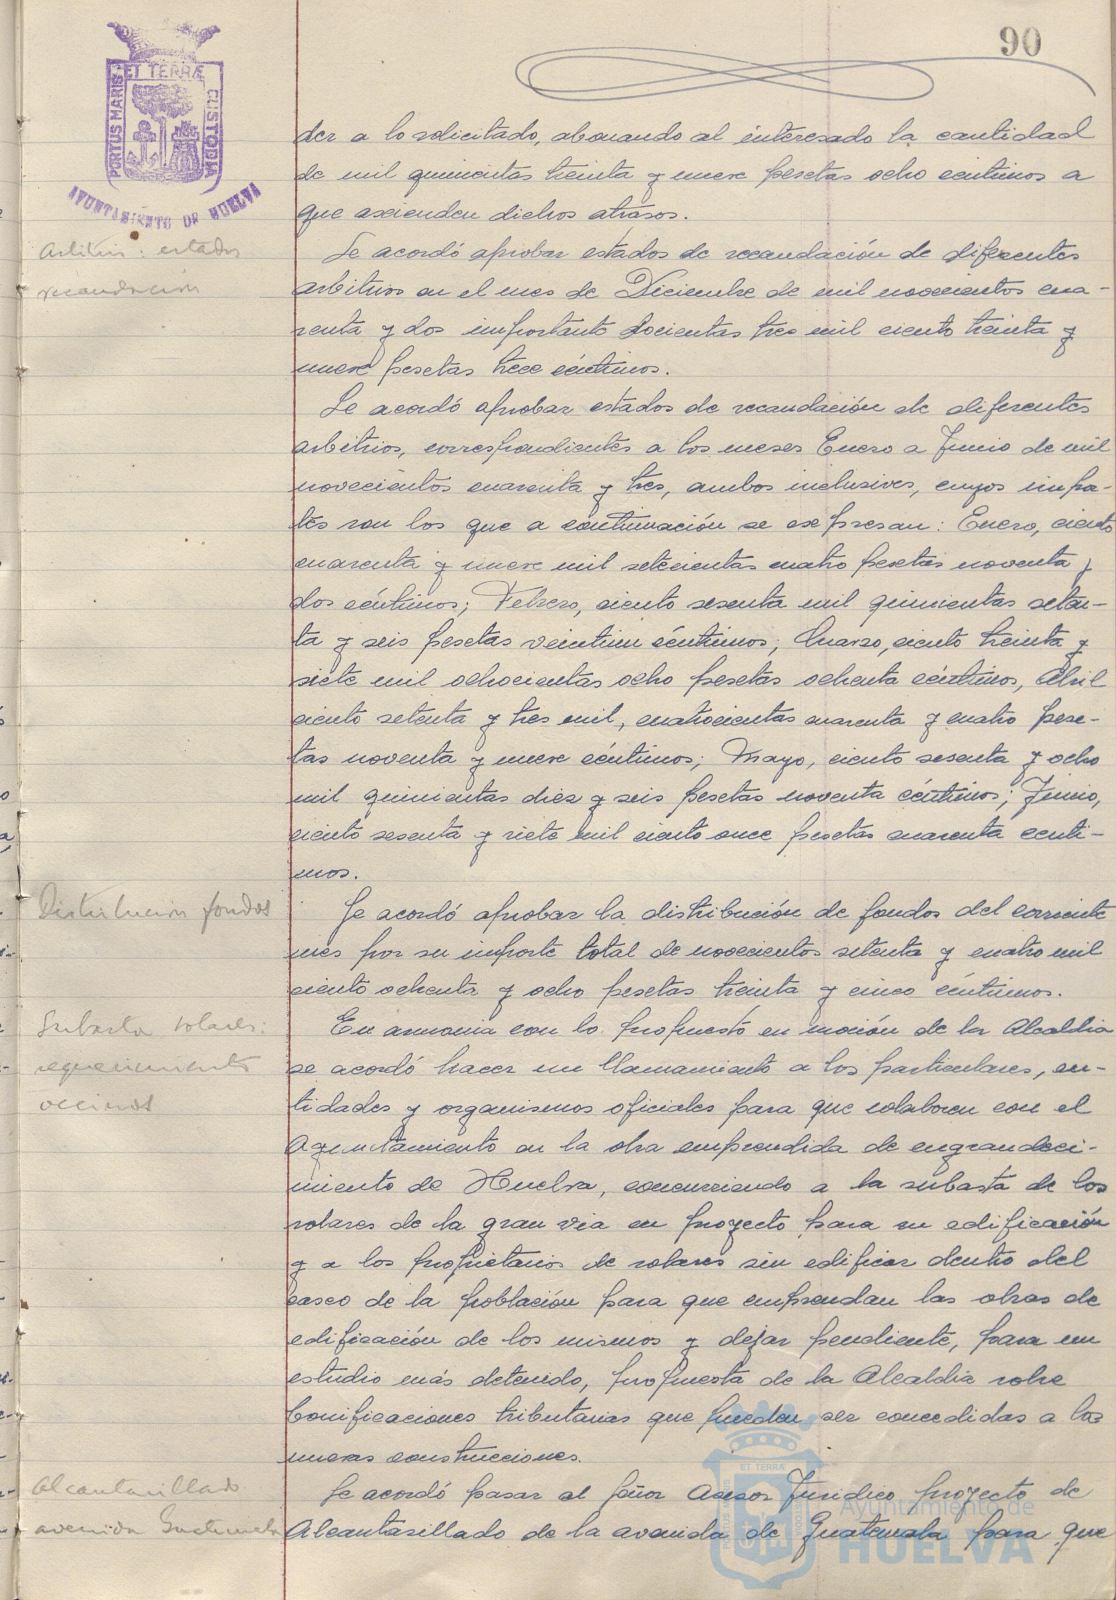 90
PORTUS MARIS ET TERRÆ CUSTODIA
AYUNTAMIENTO DE HUELVA
der a lo solicitado, abonando al interesado la cantidad
de mil quinientas treinta y nueve pesetas ocho centimos a
que ascienden dichos atrasos.
Arbitrios: estados
recaudación
Se acordó aprobar estados de recaudación de diferentes
arbitrios en el mes de Diciembre de mil novecientos cua-
renta y dos importante docientas tres mil ciento treinta y
nueve pesetas trece céntimos.
Se acordó aprobar estados de recaudación de diferentes
arbitrios, correspondientes a los meses Enero a Junio de mil
novecientos cuarenta y tres, ambos inclusives, cuyos impor-
tes son los que a continuación se expresan: Enero, ciento
cuarenta y nueve mil setecientas cuatro pesetas noventa y
dos céntimos; Febrero, ciento sesenta mil quinientas seten-
ta y seis pesetas veintiun céntimos; Marzo, ciento treinta y
siete mil ochocientas ocho pesetas ochenta céntimos, Abril
ciento setenta y tres mil, cuatrocientas cuarenta y cuatro pese-
tas noventa y nueve céntimos; Mayo, ciento sesenta y ocho
mil quinientas diez y seis pesetas noventa céntimos; Junio,
ciento sesenta y siete mil ciento once pesetas cuarenta centi-
mos.
Distribución fondos
Se acordó aprobar la distribución de fondos del corriente
mes por su importe total de novecientos setenta y cuatro mil
ciento ochenta y ocho pesetas treinta y cinco céntimos.
Subasta solares:
requerimiento
vecinos
En armonia con lo propuesto en moción de la Alcaldia
se acordó hacer un llamamiento a los particulares, en-
tidades y organismos oficiales para que colaboren con el
Ayuntamiento en la obra emprendida de engrandeci-
miento de Huelva, concurriendo a la subasta de los
solares de la gran via en proyecto para su edificación
y a los propietarios de solares sin edificar dentro del
casco de la población para que emprendan las obras de
edificación de los mismos y dejar pendiente, para un
estudio más detenido, propuesta de la Alcaldia sobre
bonificaciones tributarias que puedan ser concedidas a las
nuevas construcciones.
Alcantarillado
avenida Guatemala
Se acordó pasar al Señor Asesor Juridico proyecto de
Alcantarillado de la avenida de Guatemala para que
Ayuntamiento de
HUELVA